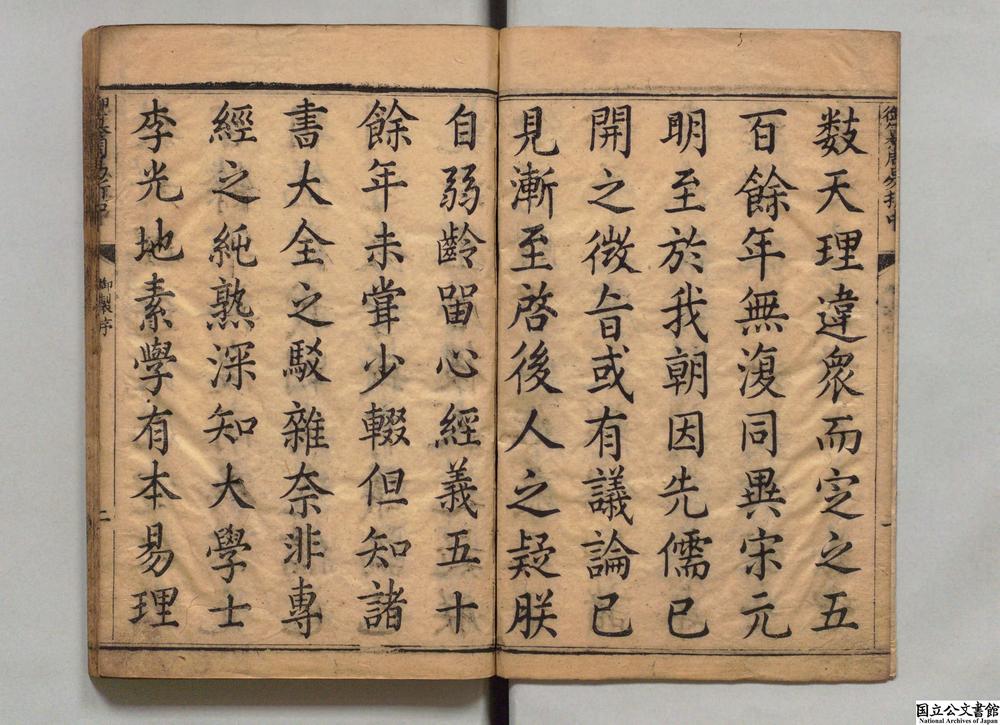 御纂周易折中
數天理違衆而定之五
百餘年無復同異宋元
明至於我朝因先儒已
開之微旨或有議論已
見漸至啓後人之疑朕
自弱齡留心經義五十
餘年未甞少輟但知諸
書大全之駁雜奈非專
經之純熟深知大學士
李光地素學有本易理
御製序
二
国立公文書館
National Archives of Japan